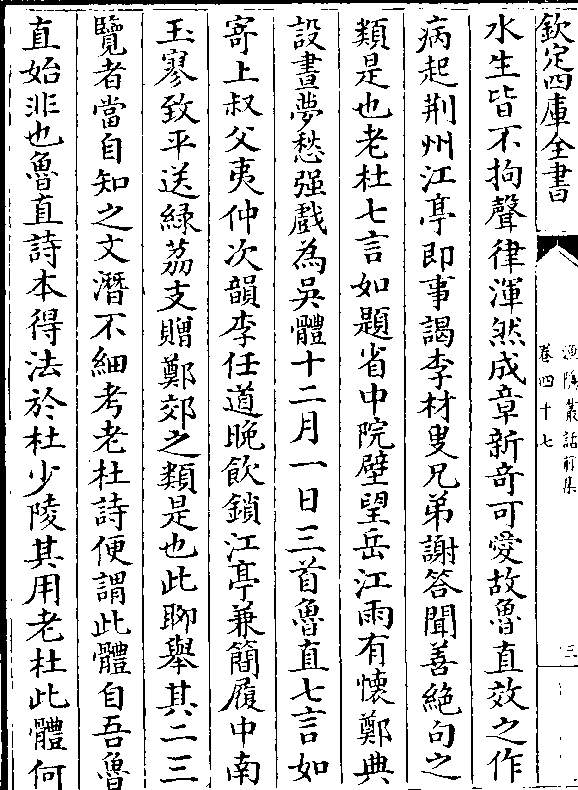 欽定四庫全書
漁隱叢話前集
卷四十七
三
水生皆不拘聲律渾然成章新奇可愛故魯直效之作
病起荆州江亭即事謁李材叟兄弟謝答聞善絶句之
類是也老杜七言如題省中院壁望岳江雨有懷鄭典
設晝夢愁强戲為吳體十二月一日三首魯直七言如
寄上叔父夷仲次韻李任道晩飲鎖江亭兼簡履中南
玉寥致平送緑荔支贈鄭郊之類是也此聊舉其二三
覽者當自知之文潛不細考老杜詩便謂此體自吾魯
直始非也魯直詩本得法於杜少陵其用老杜此體何